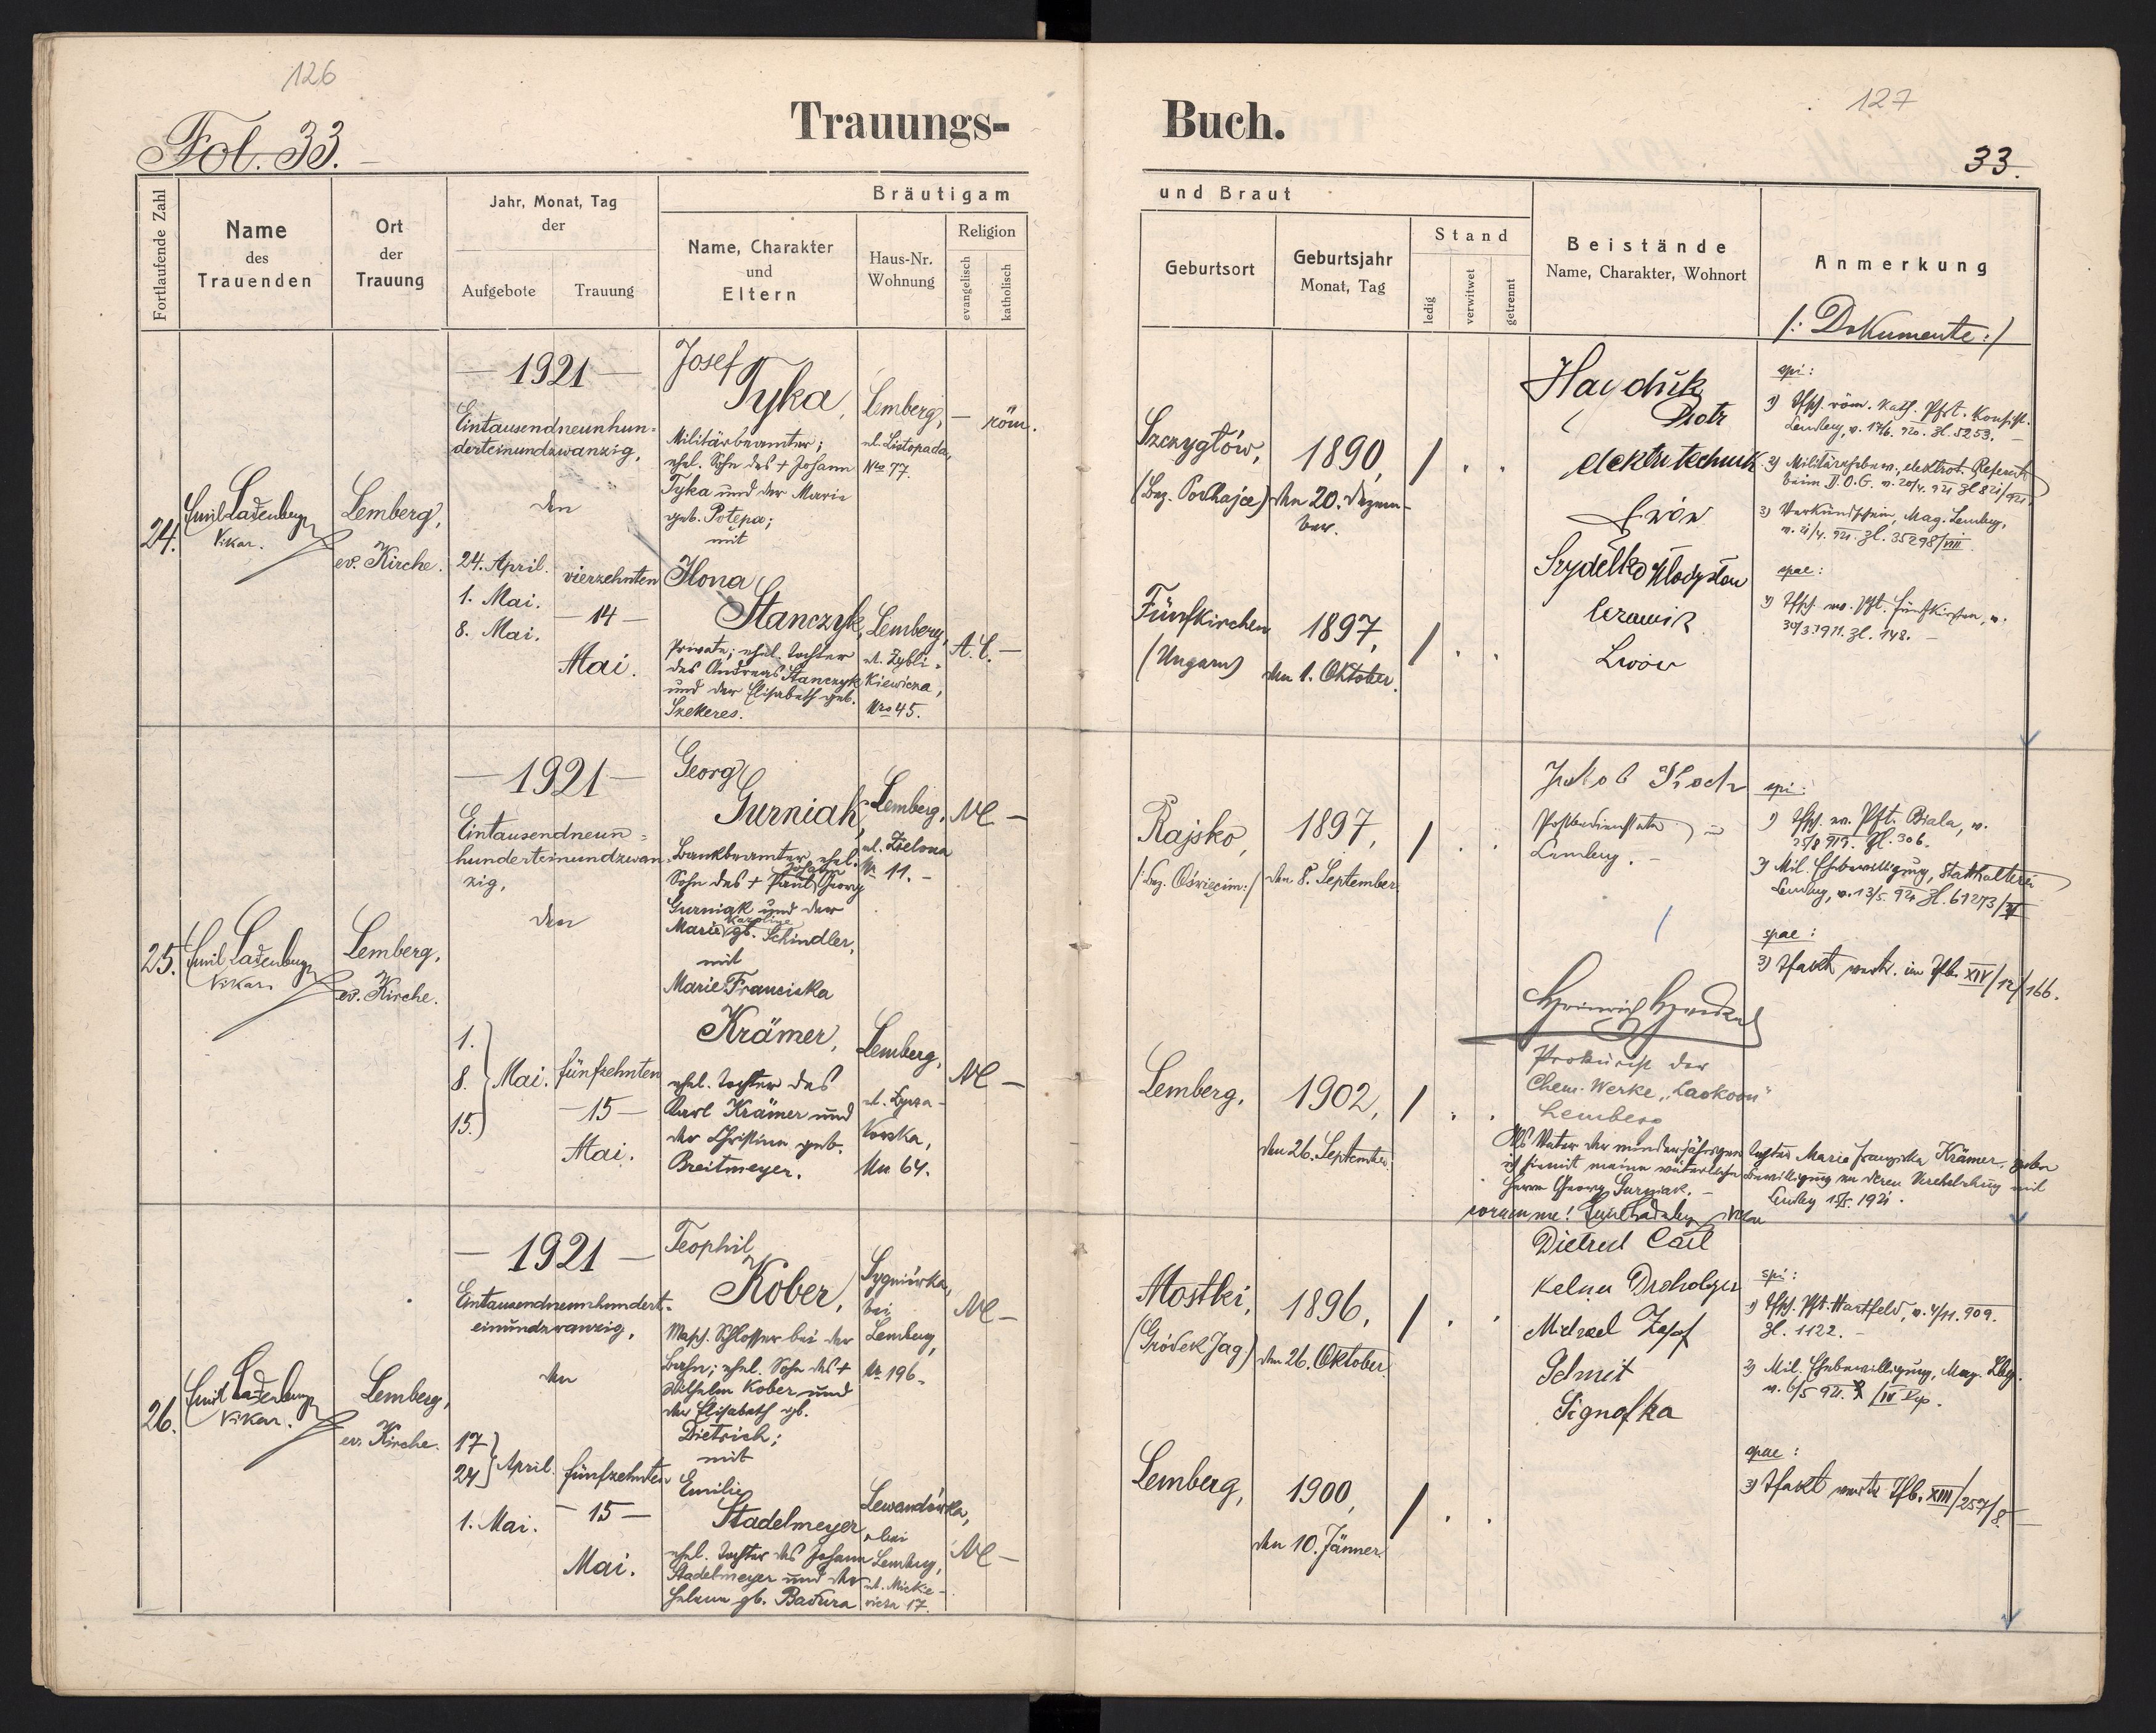 126
Fol. 33.
Trauungs-
Fortlaufende Zahl
Name
des
Trauenden
Ort
der
Trauung
Jahr, Monat, Tag
der
Aufgebote
Trauung
Bräutigam
Name, Charakter
und
Eltern
Haus-Nr.
Wohnung
Religion
evangelisch
katholisch
24.
Emil Ladenberger
Vikar.
Lemberg,
ev. Kirche.
— 1921 —
Eintausendneunhun-
derteinundzwanzig,
den
24. April.
1. Mai.
8. Mai.
vierzehnten
— 14 —
Mai.
Josef
Tyka,
Militärbeamter;
ehel. Sohn des + Johann
Tyka und der Marie
geb. Potepa;
mit
Ilona
Stanczyk,
Private; ehel. Tochter
des Andreas Stanczyk
und der Elisabeth geb.
Szekeres.
Lemberg,
ul. Listopada,
Nro 77.
— röm.
Lemberg,
ul. Zybli-
kiewicza,
Nro 45.
A. C. —
25.
Emil Ladenberger
Vikar.
Lemberg,
ev. Kirche.
— 1921 —
Eintausendneun-
hunderteinundzwan-
zig,
den
1.
8. Mai.
15.
fünfzehnten
— 15 —
Mai.
Georg
Gurniak,
Bankbeamter, ehel.
Johann
Sohn des + Paul Georg
Gurniak und der
Karoline
Marie gb. Schindler,
mit
Marie Franciska
Krämer,
ehel. Tochter des
Karl Krämer und
der Christina geb.
Breitmeyer.
Lemberg,
ul. Zielona
Nr. 11. —
AC —
Lemberg,
ul. Łycza-
kowska,
Nr. 64.
AC —
26.
Emil Ladenberger
Vikar.
Lemberg,
ev. Kirche.
— 1921 —
Eintausendneunhundert-
einundzwanzig,
den
17
24 April.
1. Mai.
fünfzehnten
— 15 —
Mai.
Teophil
Kober,
Masch. Schlosser bei der
Bahn; ehel. Sohn des +
Wilhelm Kober und
der Elisabeth gb.
Dietrich;
mit
Emilie
Stadelmeyer,
ehel. Tochter des Johann
Stadelmeyer und der
Helena gb. Badura
Sygniówka,
bei
Lemberg,
Nr. 196.
AC —
Lewandówka,
bei
Lemberg,
ul. Micke-
wicza 17.
AC —
127
Buch.
33.
und Braut
Geburtsort
Geburtsjahr
Monat, Tag
Stand
ledig
verwitwet
getrennt
Beistände
Name, Charakter, Wohnort
Anmerkung
/: Dokumente :/
Szczygłów,
(Bez. Podhajce)
1890,
den 20. Dezem-
ber.
/ . .
Fünfkirchen
(Ungarn)
1897,
den 1. Oktober.
/ . .
Hajduk
Piotr
elektrotechnik
Lwów
Szydełko Władysław
Lwów
spi:
1) Tfsch. röm. kath. Pfst.
Lemberg, v. 17/6. 920. Zl. 5253. —
beim D. O. G. v. 20/4. 921 Zl 821/921.
3) Verkündschein, Mag. Lemberg,
v. 21/4. 921. Zl. 35298/VIII.
spae:
1) Tfsch. ev. Pft. Fünfkirchen, v.
30/3. 1911. Zl. 148. —
Rajsko,
/: Bez. Oświęcim :/
1897,
den 8. September.
/ . .
Lemberg,
1902,
den 26. September.
/ . .
Jakob Koch
Lemberg. —
Heinrich
Prokurist der
Chem. Werke „Laokoon"
Lemberg
Als Vater der minderjährigen Tochter Marie Franziska Krämer, gebe
ich hiemit meine väterliche Bewilligung zu deren Verehelichung mit
Herrn Georg Gurniak. —
Lemberg 15/5. 1921.
coram me! Emil Ladenberger Vikar
spi:
1) Tfsch. ev. Pft. Biala, v.
Zl. 306.
2) Mil. Ehebewilligung, Statthalterei
Lemberg, v. 13/5. 921 Zl. 61273/
spae:
3) Tfakt im Tfb. XIV/12/166.
Mostki,
(Gródek Jag)
1896,
den 26. Oktober.
/ . .
Lemberg,
1900,
den 10. Jänner.
/ . .
Dietrich Carl
Michael Zapf
Schmit
Signofka
spi:
1) Tfsch. Pft. Hartfeld, v. 4/11. 909.
Zl. 1122. —
2) Mil. Ehebewilligung, Mag. Lbg.
v. 6/5 921.
spae:
3) Tfakt Tfb. XIII/257/8. —